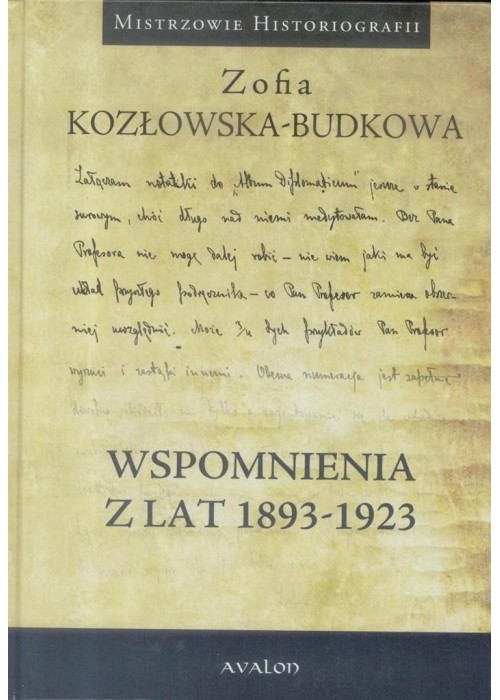 MISTRZOWIE HISTORIOGRAFII
Zofia
KOZŁOWSKA-BUDKOWA
Załączam notatki do „Album Diplomaticum" jeszcze w stanie
surowym, choć długo nad niemi medytowałam. Bez Pana
Profesora nie mogę dalej robić – nie wiem jaki ma być
układ przyszłego podręcznika – co Pan Profesor zamierza obszer-
niej uwzględnić. Może 3/4 tych przykładów Pan Profesor
wyrzuci i zastąpi innemi. Obecna numeracja jest zupełnie
WSPOMNIENIA
Z LAT 1893-1923
AVALON